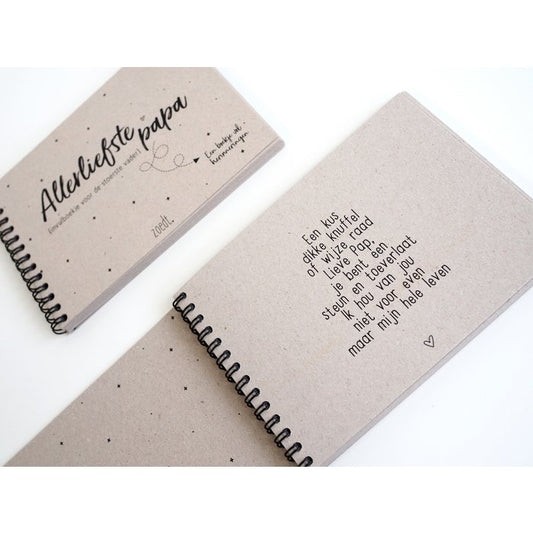 Allerliefste
papa
Invulboekje voor de stoerste vader!
Een boekje vol
herinneringen
zoedt.
Een kus
dikke knuffel
of wijze raad
Lieve Pap,
je bent een
steun en toeverlaat
Ik hou van jou
niet voor even
maar mijn hele leven